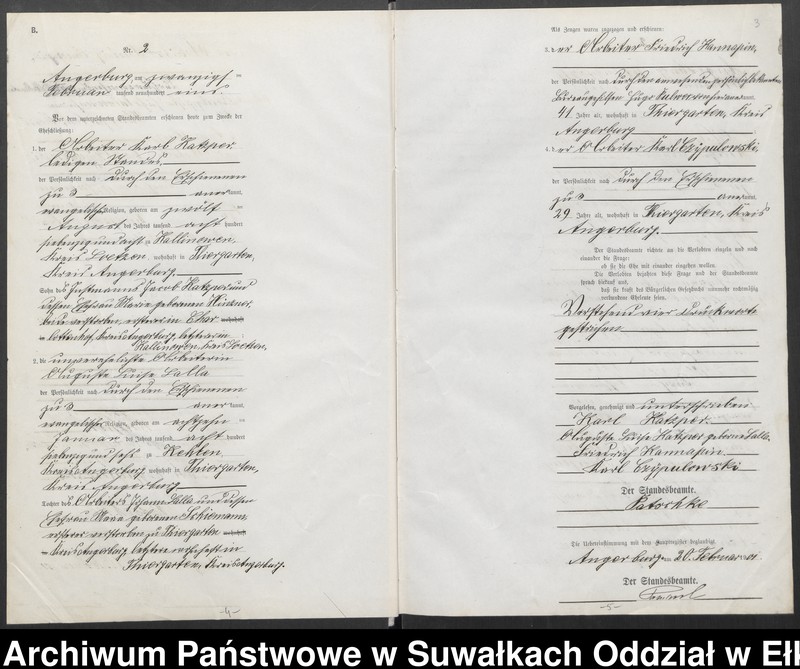 B.
Nr. 2
Angerburg, am zwanzigsten
Februar tausend neunhundert eins
Vor dem unterzeichneten Standesbeamten erschienen heute zum Zwecke der
Eheschließung:
1. der Arbeiter Karl Katzper
ledigen Standes
der Persönlichkeit nach durch den Erschienenen
zu 3 anerkannt,
evangelischer Religion, geboren am zwölften
August des Jahres tausend acht hundert
siebenzigundacht zu Kallinowen,
Kreis Loetzen, wohnhaft in Thiergarten,
Kreis Angerburg
Sohn des Instmanns Jacob Katzper und
dessen Ehefrau Marie geborenen
beide verstorben, ersterer in
wohnhaft
in Lottenhof, Kreis Angerburg, letztere in
Kallinowen, Kreis Loetzen.
2. die unverehelichte Arbeiterin
Auguste Luise Salla
der Persönlichkeit nach durch den Erschienenen
zu 3 anerkannt,
evangelischer Religion, geboren am achtzehnten
Januar des Jahres tausend acht hundert
siebenzigundsechs zu Kehlen,
Kreis Angerburg, wohnhaft in Thiergarten,
Kreis Angerburg
Tochter des Arbeiters Johann Salla und dessen
Ehefrau Maria geborenen Schiemann,
ersterer verstorben zu Thiergarten wohnhaft
Kreis Angerburg, letztere wohnhaft in
Thiergarten, Kreis Angerburg.
-4-
3
Als Zeugen waren zugezogen und erschienen:
3. der Arbeiter Friedrich Kannapin,
der Persönlichkeit nach durch den anwesenden
Bureaugehilfen Hugo anerkannt,
41 Jahre alt, wohnhaft in Thiergarten, Kreis
Angerburg
4. der Arbeiter Karl Czypulowski,
der Persönlichkeit nach durch den Erschienenen
zu 3 anerkannt,
29 Jahre alt, wohnhaft in Thiergarten, Kreis
Angerburg.
Der Standesbeamte richtete an die Verlobten einzeln und nach
einander die Frage:
ob sie die Ehe mit einander eingehen wollen.
Die Verlobten bejahten diese Frage und der Standesbeamte
sprach hierauf aus,
daß sie kraft des Bürgerlichen Gesetzbuchs nunmehr rechtmäßig
verbundene Eheleute seien.
Vorstehend vier Druckworte
gestrichen
Vorgelesen, genehmigt und unterschrieben
Karl Katzper.
Auguste Luise Katzper geborne Salla.
Friedrich Kannapin
Karl Czypulowski
Der Standesbeamte.
Patschke
Die Uebereinstimmung mit dem Hauptregister beglaubigt.
Angerburg, am 20. Februar 1901
Der Standesbeamte.
-5-
Archiwum Państwowe w Suwałkach Oddział w Eł